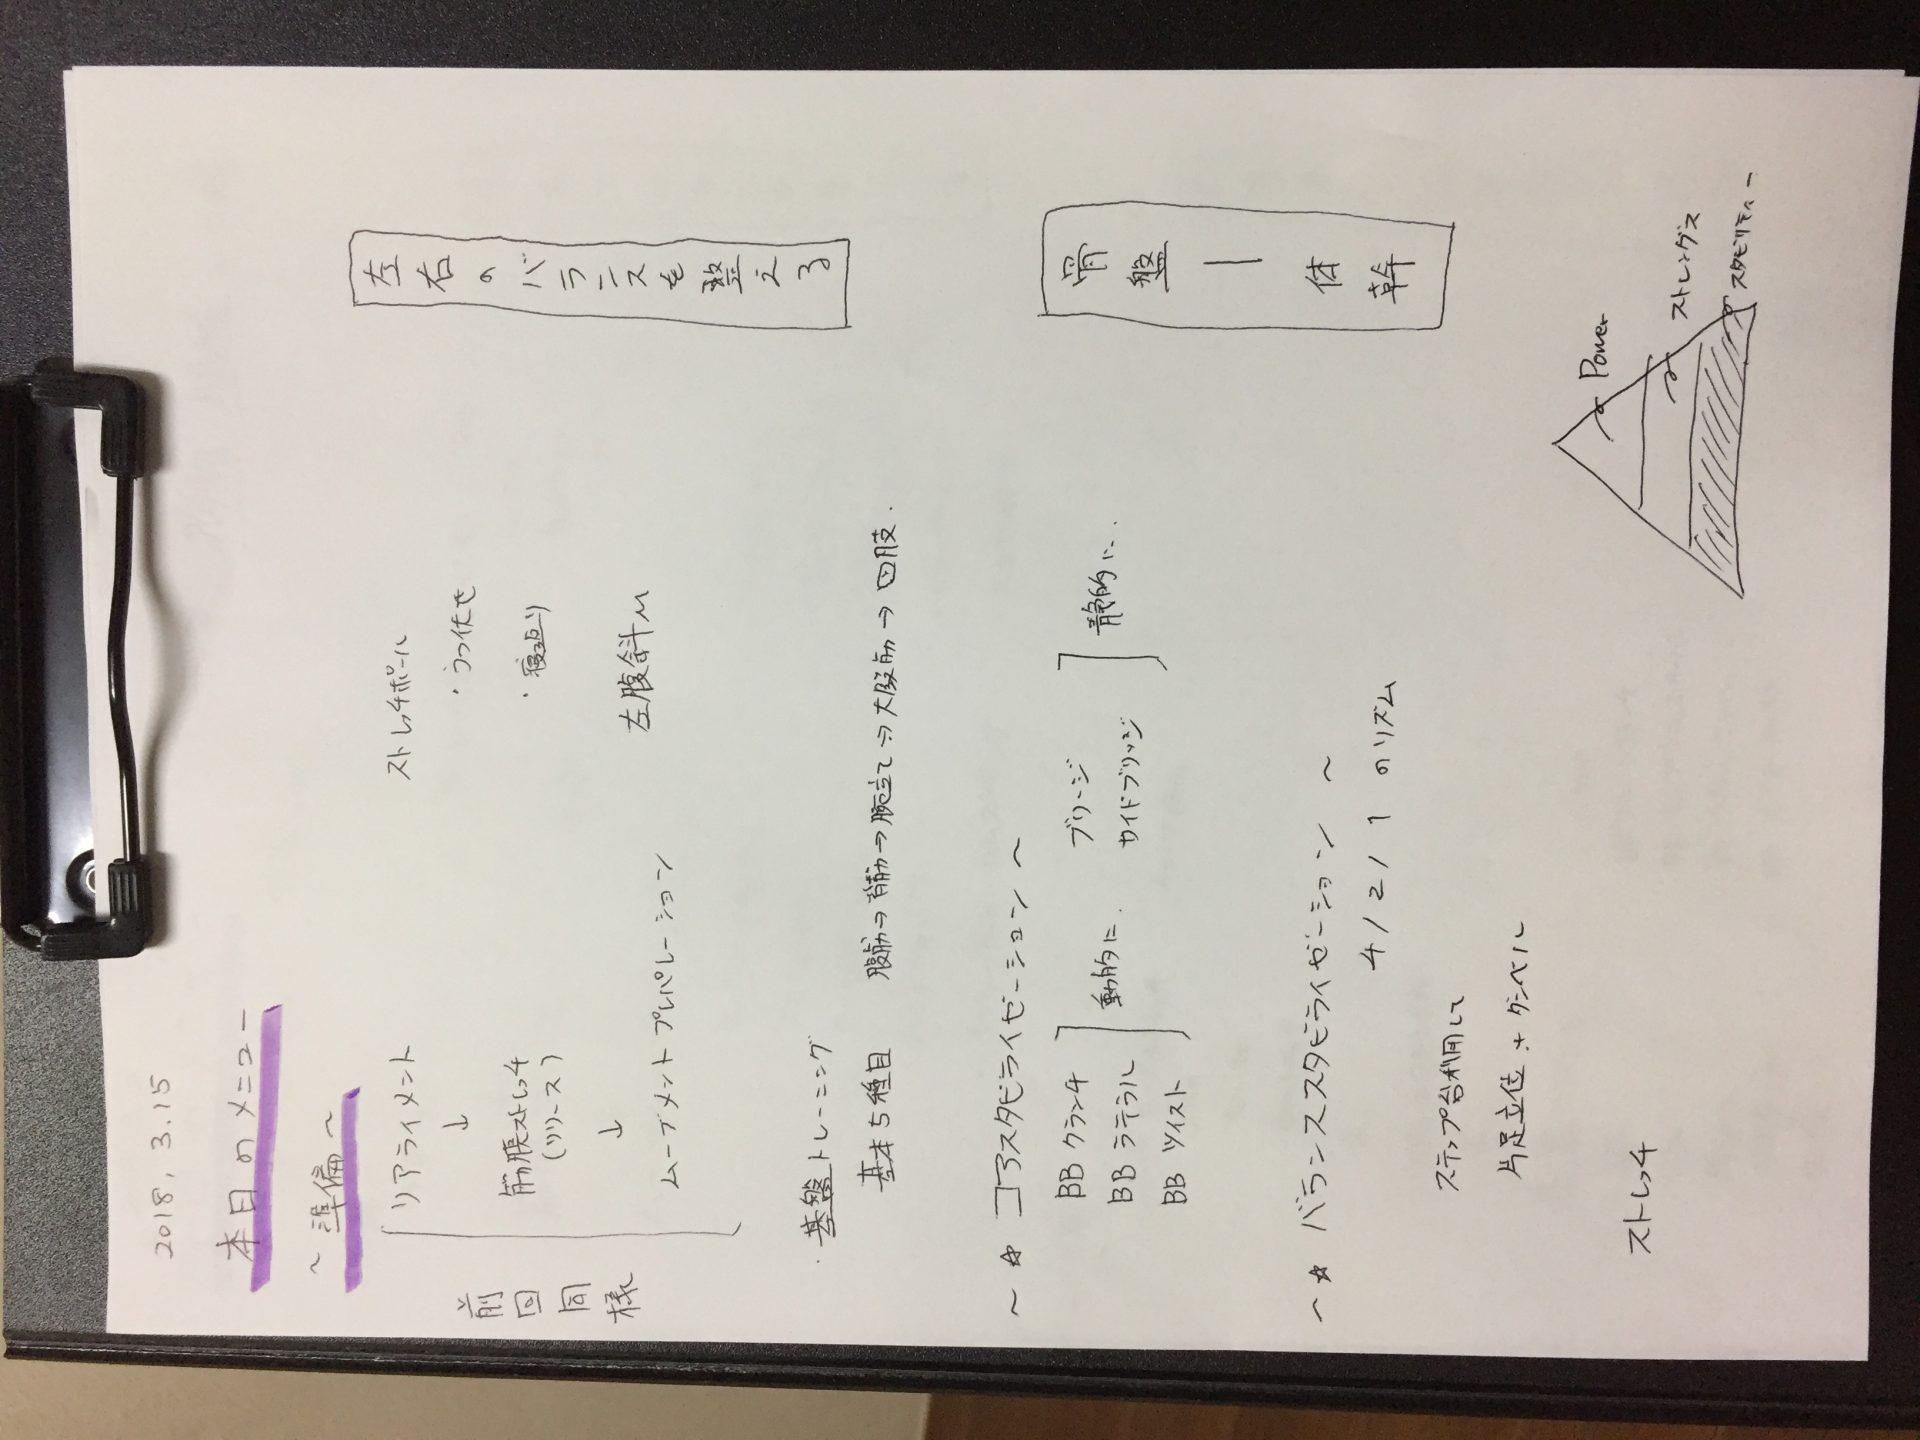 2018, 3.15
本日のメニュー
〜準備〜
前回同様
リアライメント
↓
筋膜ストレッチ
(リリース)
↓
ムーブメントプレパレーション
ストレッチポール
・うつ伏せ
・寝返り
左腹斜M
左右のバランスを整える
・基盤トレーニング
基本5種目 腹筋→背筋→腕立て→大殿筋→四肢.
〜☆ コアスタビライゼーション〜
BB クランチ
BB ラテラル
BB ツイスト
動的に.
ブリッジ
サイドブリッジ
静的に.
骨盤ー体幹
〜☆ バランススタビライゼーション 〜
4 / 2 / 1 のリズム
ステップ台利用して
片足立位 + ダンベル
ストレッチ
Power
ストレングス
スタビリティー